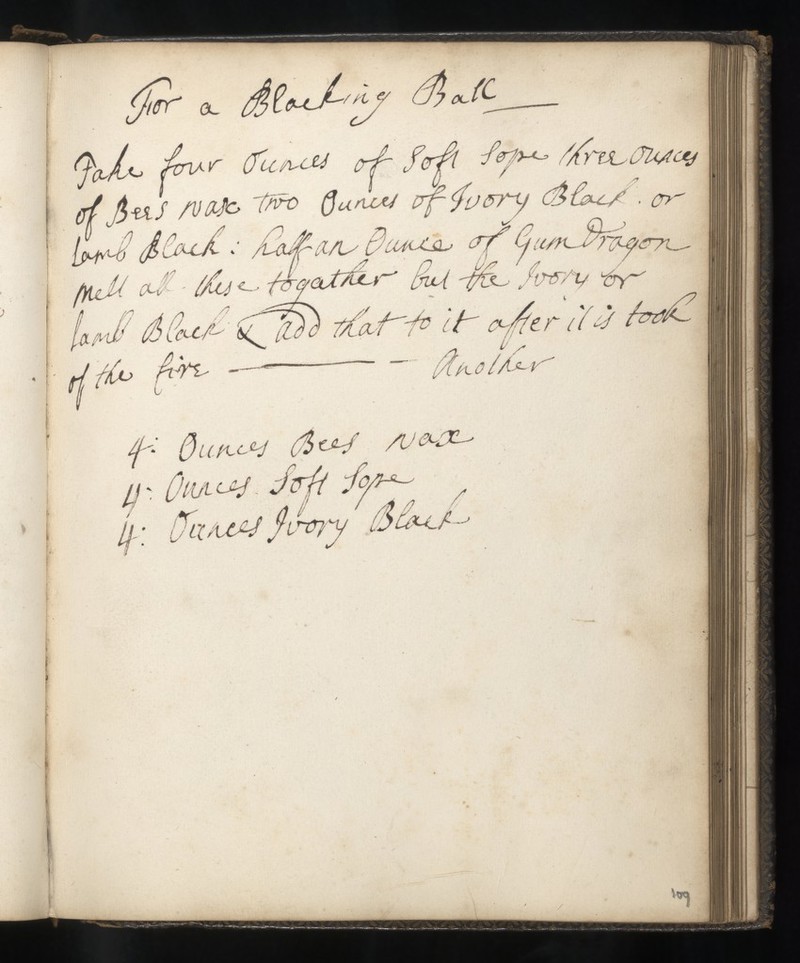 For a Blacking Ball
Take four Ounces of Soft Sope three Ounces
of Bees wax two Ounces of Ivory Black . or
Lamb Black : half an Ounce of Gum Dragon
Melt all these togather but the Ivory or
lamb Black & add that to it after it is took
of the fire — Another
4: Ounces Bees wax
4: Ounces Soft Sope
4: Ounces Ivory Black
109